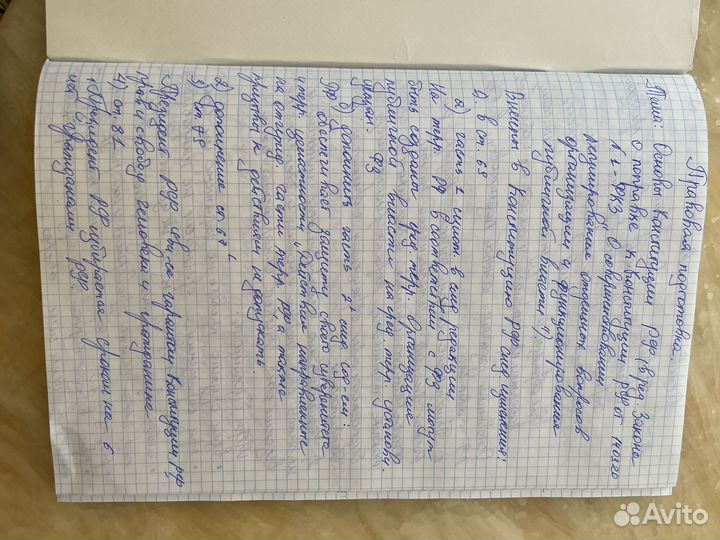 Правовая подготовка.
Тема: Основы Конституции РФ (в ред Закона
о поправке к Конституции РФ от
N 1-ФКЗ О совершенствовании
регулирования отдельных вопросов
организации и функционирования
публичной власти").
Внесены в Конституцию РФ след. изменения:
1) в ст 67
а) часть 1 излож. в след редакции
На терр. РФ в соответствии с ФЗ могут
быть созданы фед. терр. Организация
публичной власти на фед. терр. установ.
указан. ФЗ
б) дополнить часть 2¹ след сод-ем:
РФ обеспечивает защиту своего суверенитета
и терр. целостности. Действия направленные
на отчужд. части терр. РФ, а также
призывы к действиям не допускать.
2) дополнение ст 67¹
3) ст 75
Президент РФ явл-ся гарантом Конституции РФ
прав и свобод человека и гражданина
4) ст. 81
Президент РФ избирается сроком на 6
лет гражданами РФ.
Avito